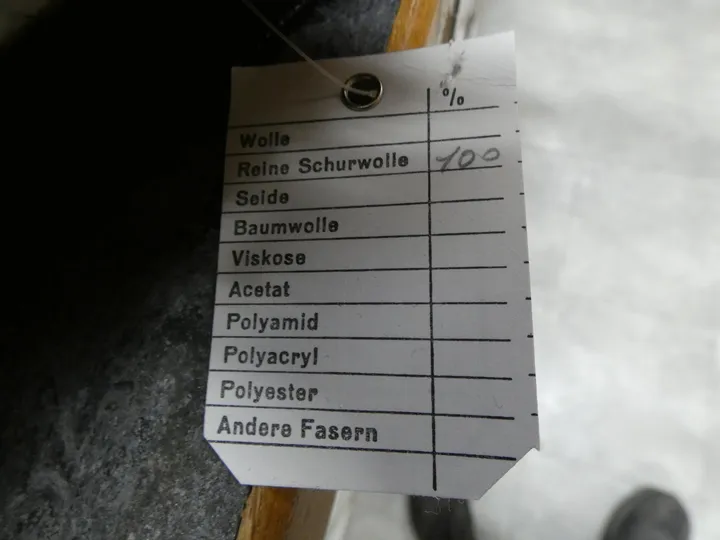 %
Wolle
Reine Schurwolle 100
Seide
Baumwolle
Viskose
Acetat
Polyamid
Polyacryl
Polyester
Andere Fasern